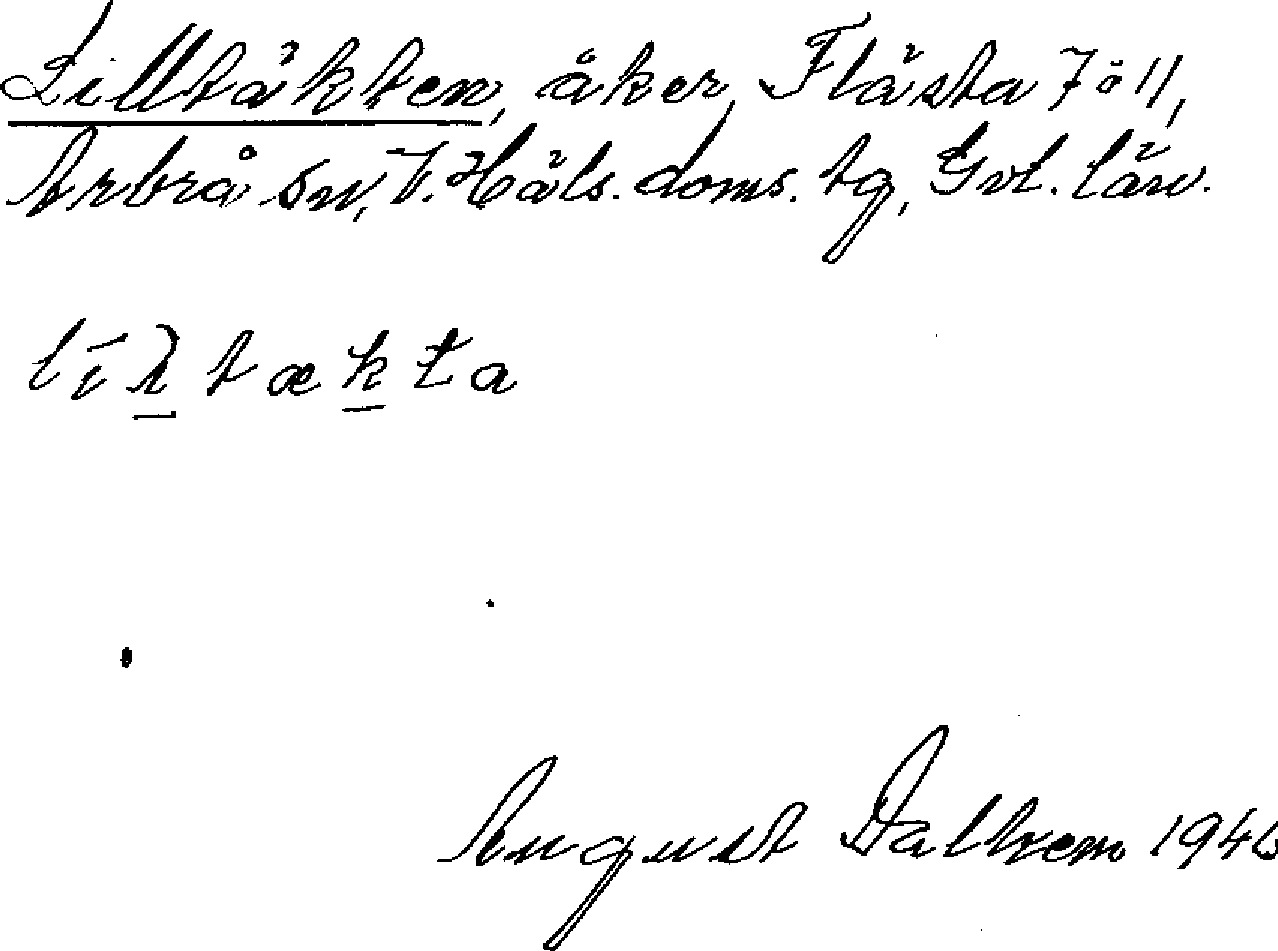 Lilltäkten, åker, Flästa 7 o 11,
Arbrå sn, V. Häls. doms. tg, Gvl. län.
līλtækta
August Dalhem 194